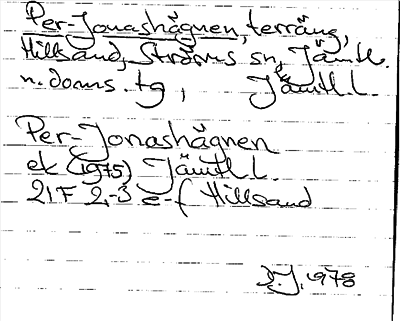 Per-Jonashägnen, terräng,
Hillsand, Ströms sn, Jämtl.
n. doms. tg, Jämtl. l.
Per-Jonashägnen
ek (1975) Jämtl. l.
21 F 2-3 e-f Hillsand
1978